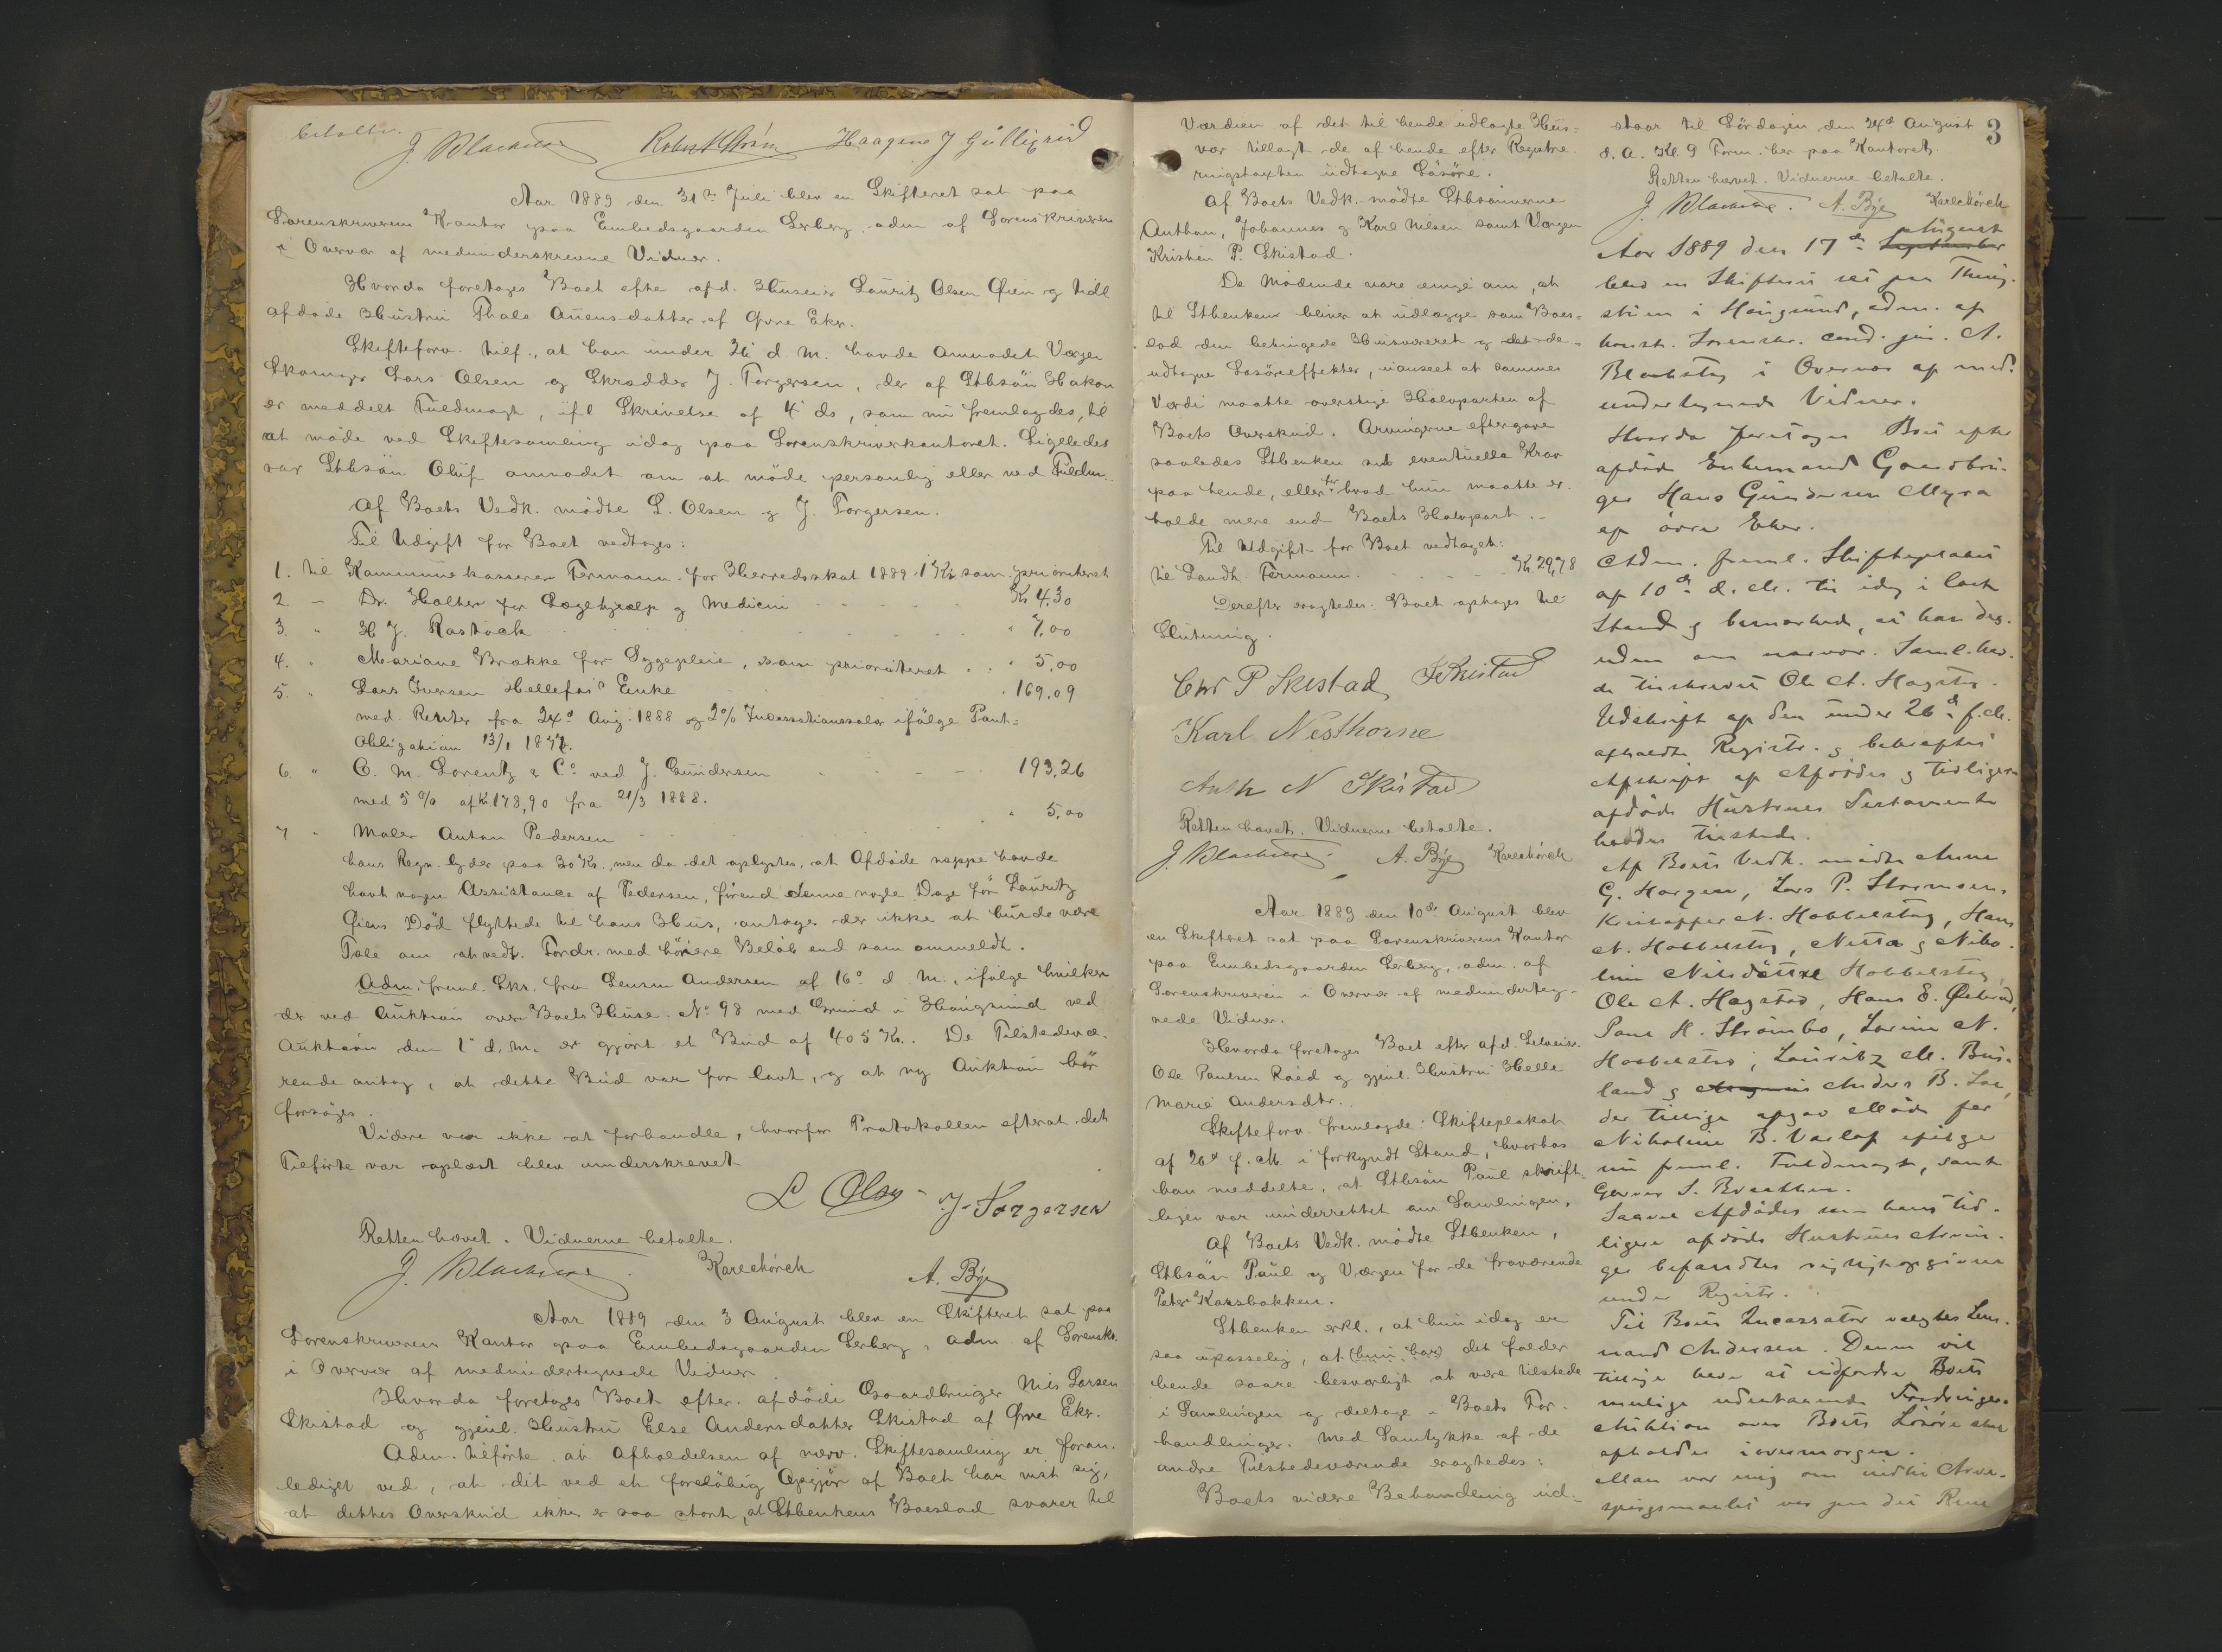 betalte.
J. Blackstad Robert Strøm Haagene J Gulligrud
Aar 1889 den 31te Juli blev en Skifteret sat paa
Sorenskriverens Kontor paa Embedsgaarden Lerberg, adm. af Sorenskriveren
i Overvær af medunderskrevne Vidner.
Hvorda foretoges Boet efter afd. Huseier Lauritz Olsen Øien og tidl
afdøde Hustru Thale Auensdatter af Øvre Eker.
Skifteforv. tilf., at han under 26' d. M. havde anmodet Værgen
Skomager Lars Olsen og Skrædder J. Torgersen, der af Stbsøn Hakon
er meddelt Fuldmagt, ifl Skrivelse af 4' ds, som nu fremlagdes, til
at møde ved Skiftesamling idag paa Sorenskriverkontoret. Ligeledes
var Stbsøn Oluf anmodet om at møde personlig eller ved Fuldm.
Af Boets Vedk. mødte L. Olsen og J. Torgersen.
Til Udgift for Boet vedtoges:
1. til Kommunekasserer Fermann for Herredsskat 1889. 1 Kr. som prioriteret
2. – Dr. Holter for Lægehjælp og Medicin Kr 4,30
3. " H J. Rastock " 7,00
4. " Mariane Brække for Sygepleie, som prioriteret " 5,00
5. " Lars Iversen Hellefos's Enke " 169.09
med Renter fra 24d Aug 1888 og 2% Incassationssalær ifølge Pant-
obligation 13/1 187
6 " C. M. Lorentz & Co ved J. Gundersen 193,26
med 5 % af Kr. 173,90 fra 21/3 1888.
7 " Maler Anton Pedersen " 5,00
hans Regn. lyder paa 30 Kr., men da det oplystes, at Afdøde neppe havde
havt nogen Assistance af Pedersen, førend denne nogle Dage før Lauritz
Øiens Død flyttede til hans Hus, antoges der ikke at burde være
Tale om at vedt. Fordr. med høiere Beløb end som anmeldt.
Adm. freml. Skr. fra Lensm Andersen af 16' d M., ifølge hvilken
der ved Auktion over Boets Huse No 98 med Grund i Hougsund ved
Auktion den 1' d. M. er gjort et Bud af 405 Kr. De Tilstedevæ-
rende antog, at dette Bud var for lavt, og at ny Auktion bør
forsøges.
Videre var ikke at forhandle, hvorfor Protokollen efterat det
Tilførte var oplæst blev underskrevet
L Olsen J. Torgersen
Retten hævet. Vidnerne betalte.
J. Blackstad Karechörch A. Bÿe
Aar 1889 den 3 August blev en Skifteret sat paa
Sorenskriverens Kontor paa Embedsgaarden Lerberg, adm. af Sorenskr.
i Overvær af medundertegnede Vidner
Hvorda foretoges Boet efter afdøde Gaardbruger Nils Larsen
Skistad og gjenl. Hustru Else Andersdatter Skistad af Øvre Eker.
Adm. tilførte, at Afholdelsen af nærv. Skiftesamling er foran-
lediget ved, at det ved et foreløbig Opgjør af Boet har vist sig,
at dettes Overskud ikke er saa stort, at Stbenkens Boeslod svarer til
Værdien af det til hende udlagte Hus-
vær tillagt de af hende efter Registre-
ringstaxten udtagne Løsøre.
Af Boets Vedk. mødte Stbsønnerne
Anthon, Johannes og Karl Nilsen samt Værgen
Kristen P. Skistad.
De Mødende vare enige om, at
til Stbenken bliver at udlægge som Boes-
lod den betingede Husværet og de
udtagne Løsøreeffekter, uanseet at sammes
Værdi maatte overstige Halvparten af
Boets Overskud. Arvingerne eftergave
saaledes Stbenken eventuelle Krav
paa hende, eller for hvad hun maatte er-
holde mere end Boets Halvpart.
Til Udgift for Boet vedtoges:
til Landh. Fermann. Kr. 29,78
Derefter eragtedes: Boet optages til
Slutning.
Chr P Skistad J Skistad
Karl Nesthorne
Anth N Skistad
Retten hævet. Vidnerne betalte.
J. Blackstad A. Bÿe Karechörch
Aar 1889 den 10de August blev
en Skifteret sat paa Sorenskriverens Kontor
paa Embedsgaarden Lerberg, adm. af
Sorenskriveren i Overvær af medunderteg-
nede Vidner.
Hvorda foretoges Boet efter afd. Selveier
Ole Paulsen Røed og gjenl. Hustru Helle
Marie Andersdtr.
Skifteforv. fremlagde: Skifteplakat
af 26d f. M. i forkyndt Stand, hvorhos
han meddelte, at Stbsøn Paul skrift-
ligen var underrettet om Samlingen.
Af Boets Vedk. mødte Stbenken,
Stbsøn Paul og Værgen for de fraværende
Peter Korsbakken.
Stbenken erkl., at hun idag er
saa upasselig, at (hun har) det falder
hende saare besværligt at være tilstede
i Samlingen og deltage i Boets For-
handlinger. Med Samtykke af de
andre Tilstedeværende eragtedes:
Boets videre Behandling ud-
3
staar til Lørdagen den 24d August
d. A. Kl. 9 Form. her paa Kontoret.
Retten hævet. Vidnerne betalte.
J. Blackstad. A. Bÿe Karechörch
Aar 1889 den 17de September August
blev en Skifteret sat paa Thing-
stuen i Hougsund, adm. af
const. Sorenskr. cand. jur. A.
Blackstad i Overvær af med-
undertegnede Vidner.
Hvorda foretoges Boet efter
afdøde Enkemand Gaardbru-
ger Hans Gundersen Myra
af øvre Eker.
Adm. freml. Skifteplakat
af 10de d. M. til idag i læst
Stand og bemærkede, at han des-
uden om nærvær. Saml. hav-
de tilskrevet Ole A. Hagstad.
Udskrift af den under 26de f. M.
afholdte Registr. og bekræftet
Afskrift af Afdødes og tidligere
afdøde Hustrues Testamente
havdes tilstede.
Af Boets Vedk. mødte Anne
G. Horgen, Lars P. Stormoen,
Kristoffer A. Hobbelstad, Hans
A. Hobbelstad, Netta og Niko-
line Nilsdöttre Hobbelstad,
Ole A. Hagstad, Hans E.
Paul H. Strømbo, Lorine A.
Hobbelstad, Lauritz M. Bus-
land og Anders B. Loe,
der tillige afgav Møde for
Nikoline B. ifølge
nu freml. Fuldmagt, samt
Garver S. Braathen.
Saavel Afdødes som hans tid-
ligere afdøde Hustrues Arvin-
ger befandtes rigtigt opgivne
under Registr.
Til Boets Incassator valgtes Lens-
mand Andersen. Denne vil
tillige have at indfordre Boets
mulige udestaaende Fordringer.
Auktion over Boets Løsøre skal
afholdes iovermorgen.
Man var enig om indtil Arve-
spørgsmaalet var paa det Rene